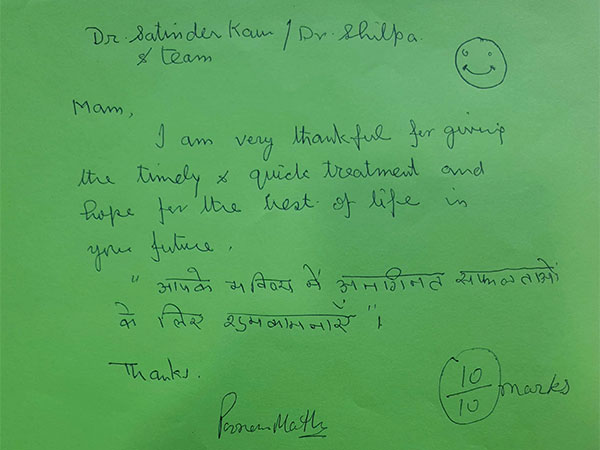 Dr. Satinder Kaur / Dr. Shilpa.
& team
Mam,
I am very thankful for giving
the timely & quick treatment and
hope for the best of life in
your future.
" आपके भविष्य में अनगिनत सफलताओं
के लिए शुभकामनाएँ "।
Thanks.
10/10 marks